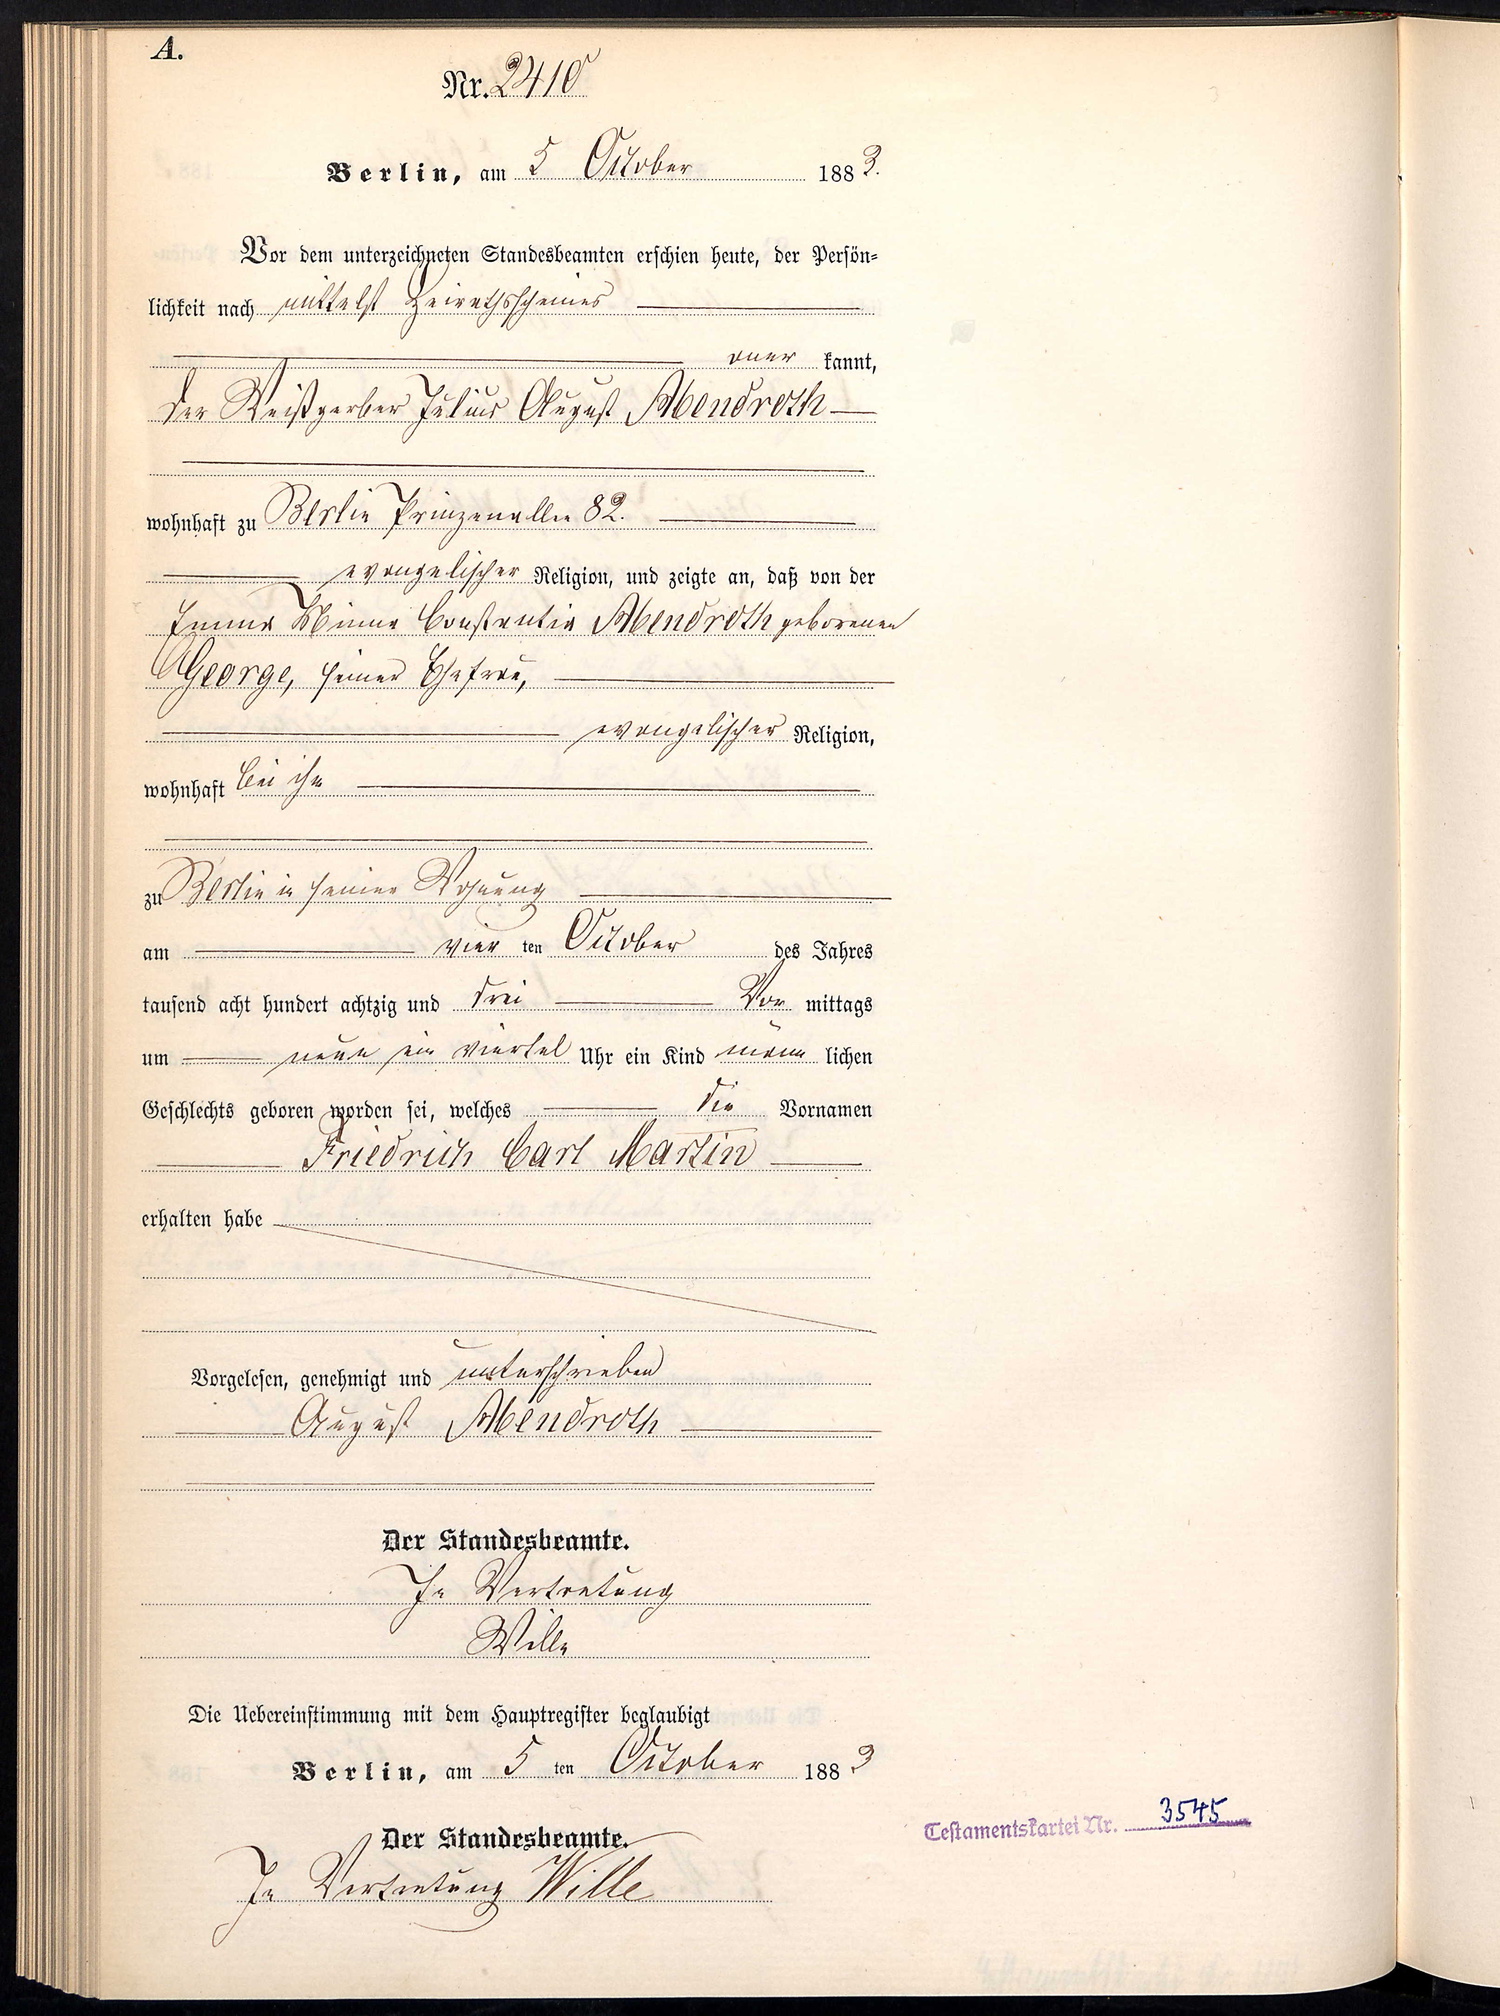 A.
Nr. 2410
Berlin, am 5 October 1883.
Vor dem unterzeichneten Standesbeamten erschien heute, der Persön=
lichkeit nach mittelst Heirathsscheines
aner kannt,
der Weißgerber Julius August Abendroth
wohnhaft zu Berlin Prinzenallee 82.
evangelischer Religion, und zeigte an, daß von der
Emma Minna Constantia Abendroth geborenen
George, seiner Ehefrau,
evangelischer Religion,
wohnhaft bei ihm
zu Berlin in seiner Wohnung
am vier ten October des Jahres
tausend acht hundert achtzig und drei Vor mittags
um neun ein viertel Uhr ein Kind männ lichen
Geschlechts geboren worden sei, welches die Vornamen
Friedrich Carl Martin
erhalten habe
Vorgelesen, genehmigt und unterschrieben
August Abendroth
Der Standesbeamte.
In Vertretung
Wille
Die Uebereinstimmung mit dem Hauptregister beglaubigt
Berlin, am 5 ten October 1883
Der Standesbeamte.
In Vertretung Wille
Testamentskartei Nr. 3545